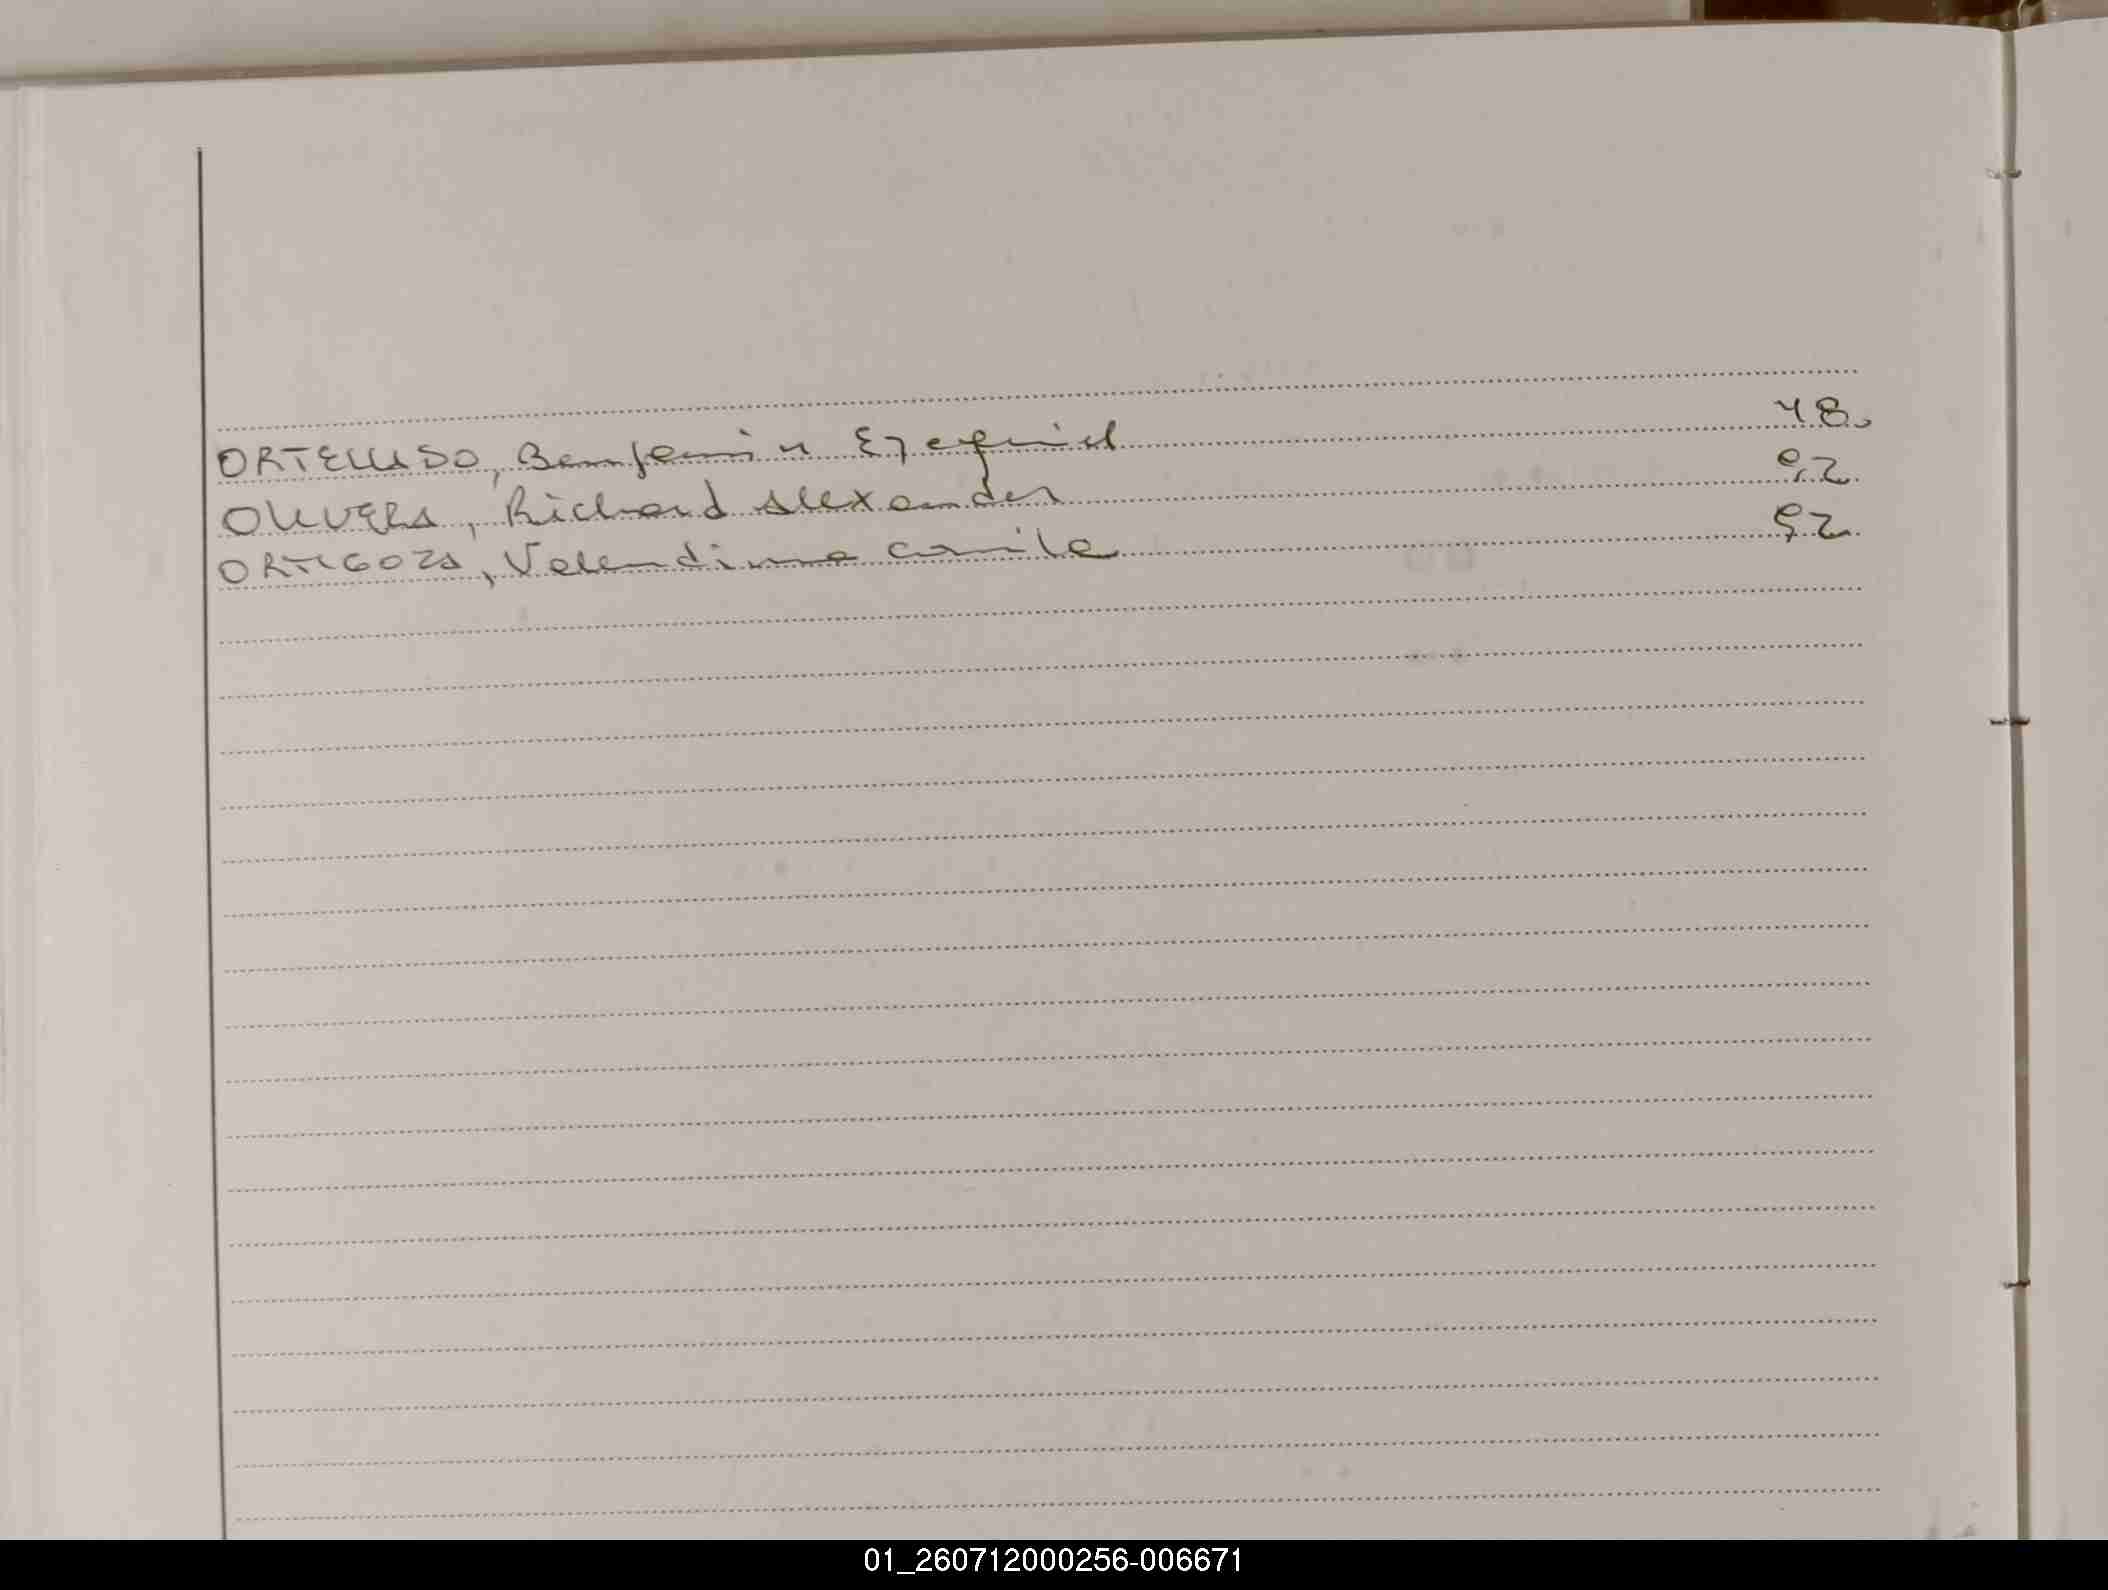 ORTELLADO, Benjamin Ezequiel 48.
OLIVERA, Richard Alexander 52
ORTIGOZA, Valentina Camila 52
01_260712000256-006671